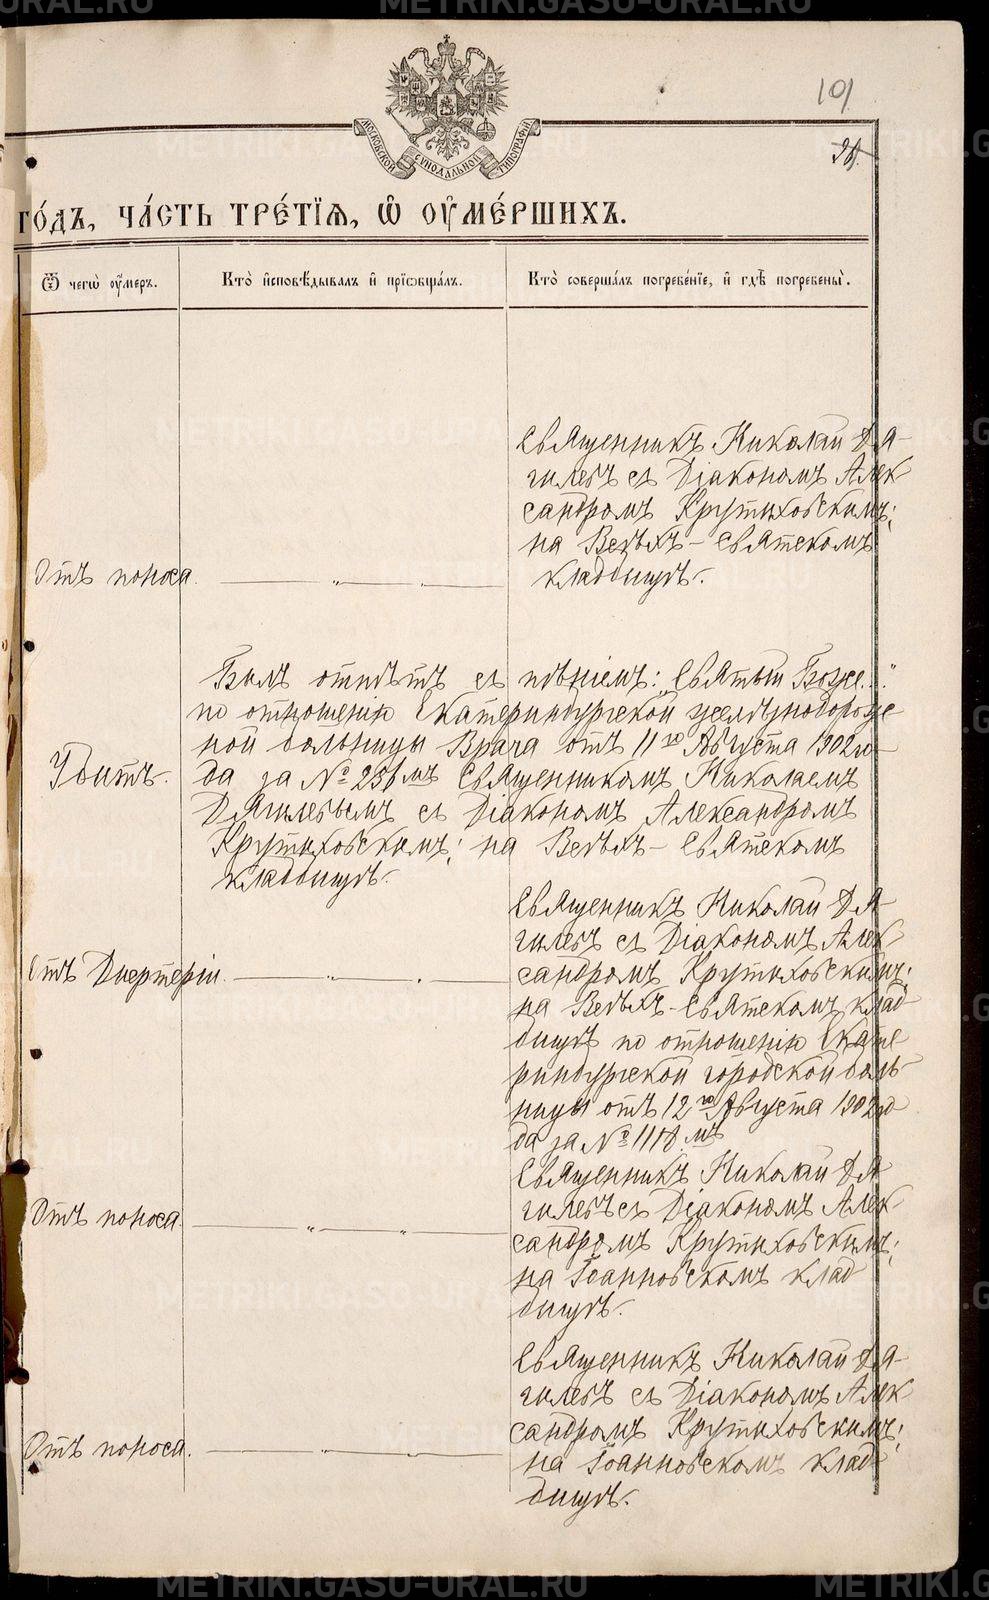 METRIKI.GASO-URAL.RU
101
МОСКОВСКОЙ СѴНОДАЛЬНОЙ ТИПОГРАФІИ
го́дъ, ча́сть тре́тїѧ, ѡ҆ ᲂу҆ме́ршихъ.
Ѿ чегѡ̀ ᲂу҆́меръ.
Кто̀ и҆сповѣ́дывалъ и҆ прїѡбща́лъ.
Кто̀ соверша́лъ погребе́нїе, и҆ гдѣ̀ погребены̀.
Священникъ Николай Дя-
гилевъ съ Діакономъ Алек
сандромъ Крутиховскимъ;
на Всѣхъ-Святскомъ
Отъ поноса. — „ — „ — кладбищѣ.
Былъ отпѣтъ съ пѣніемъ: „Святый Боже..."
по отношенію Екатеринбургской желѣзнодорож
ной больницы Врача отъ 11го Августа 1902 го-
Убитъ. да за № 231мъ Священникомъ Николаемъ
Дягилевымъ съ Діакономъ Александромъ
Крутиховскимъ; на Всѣхъ-Святскомъ
кладбищѣ.
Священникъ Николай Дя
гилевъ съ Діакономъ Алек-
Отъ Диѳтеріи. — „ — „ — сандромъ Крутиховскимъ;
на Всѣхъ-Святскомъ клад
бищѣ по отношенію Екате
ринбургской городской боль
ницы отъ 12го Августа 1902 го
да за № 1118мъ
Священникъ Николай Дя
гилевъ съ Діакономъ Алек-
Отъ поноса. — „ — „ — сандромъ Крутиховскимъ;
на Іоанновскомъ клад
бищѣ.
Священникъ Николай Дя-
гилевъ съ Діакономъ Алек
сандромъ Крутиховскимъ;
Отъ поноса. — „ — „ — на Іоанновскомъ клад
бищѣ.